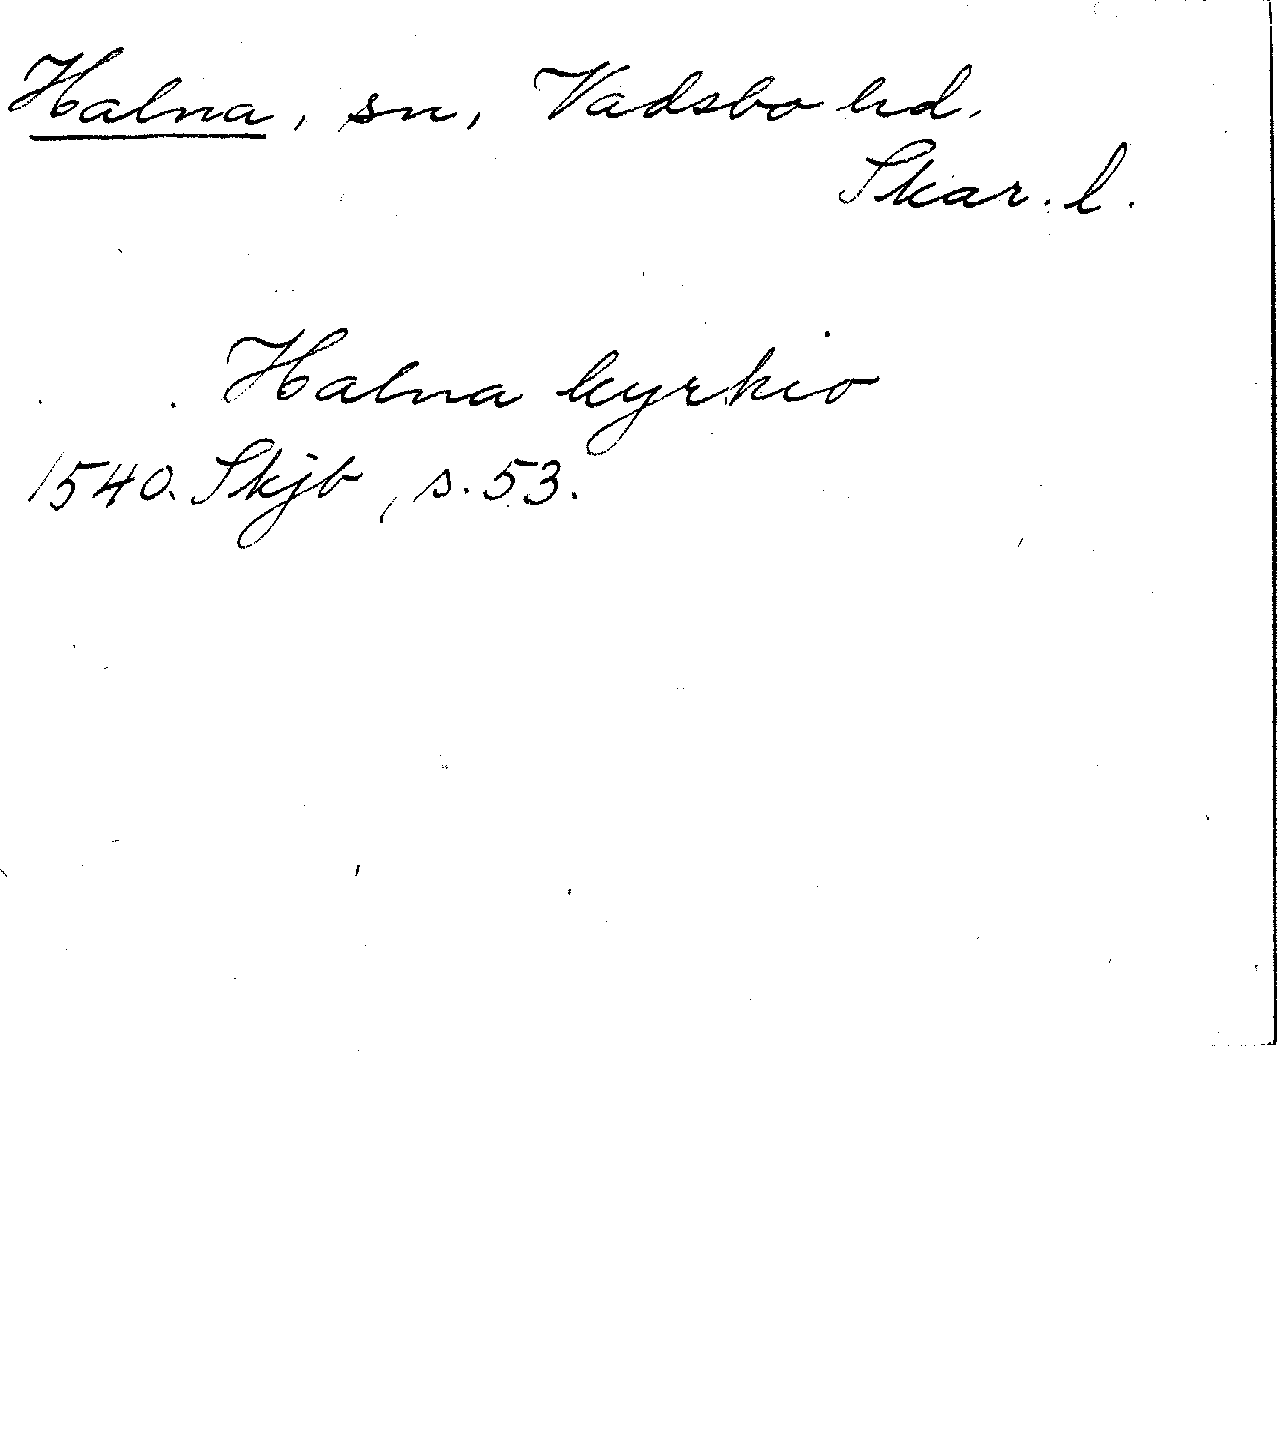 Halna, sn, Vadsbo hd.
Skar. l.
Halna kyrkio
1540. Skjb, s. 53.